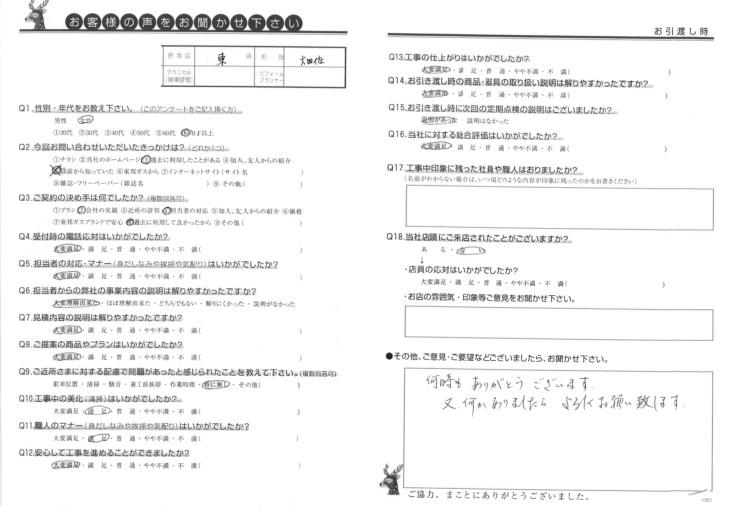 お客様の声をお聞かせ下さい
担当店 東 店 担当 火田佐
テクニカル(現場管理) リフォームプランナー
Q1.性別・年代をお教え下さい。(このアンケートをご記入頂く方)
男性 女性
①20代 ②30代 ③40代 ④50代 ⑤60代 ⑥70才以上
Q2.今回お問い合わせいただいたきっかけは?(どれか1つ)
①チラシ ②当社のホームページ ③過去に利用したことがある ④知人、友人からの紹介
⑤以前から知っていた ⑥東邦ガスから ⑦インターネットサイト(サイト名 )
⑧雑誌・フリーペーパー(雑誌名 ) ⑨その他( )
Q3.ご契約の決め手は何でしたか?(複数回答可)
①プラン ②会社の実績 ③近所の評判 ④担当者の対応 ⑤知人、友人からの紹介 ⑥価格
⑦東邦ガスブランドで安心 ⑧過去に利用して良かったから ⑨その他( )
Q4.受付時の電話応対はいかがでしたか?
大変満足・満 足・普 通・やや不満・不 満( )
Q5.担当者の対応・マナー(身だしなみや挨拶や気配り)はいかがでしたか?
大変満足・満 足・普 通・やや不満・不 満( )
Q6.担当者からの弊社の事業内容の説明は解りやすかったですか?
大変理解出来た・ほぼ理解出来た・どちらでもない・解りにくかった・説明がなかった
Q7.見積内容の説明は解りやすかったですか?
大変満足・満 足・普 通・やや不満・不 満( )
Q8.ご提案の商品やプランはいかがでしたか?
大変満足・満 足・普 通・やや不満・不 満( )
Q9.ご近所さまに対する配慮で問題があったと感じられたことを教えて下さい。(複数回答可)
駐車位置・清掃・騒音・着工前挨拶・作業時間・特に無し・その他( )
Q10.工事中の美化(清掃)はいかがでしたか?
大変満足・満 足・普 通・やや不満・不 満( )
Q11.職人のマナー(身だしなみや挨拶や気配り)はいかがでしたか?
大変満足・満 足・普 通・やや不満・不 満( )
Q12.安心して工事を進めることができましたか?
大変満足・満 足・普 通・やや不満・不 満( )
お引渡し時
Q13.工事の仕上がりはいかがでしたか?
大変満足・満 足・普 通・やや不満・不 満( )
Q14.お引き渡し時の商品・器具の取り扱い説明は解りやすかったですか?
大変満足・満 足・普 通・やや不満・不 満( )
Q15.お引き渡し時に次回の定期点検の説明はございましたか?
説明があった 説明はなかった
Q16.当社に対する総合評価はいかがでしたか?
大変満足・満 足・普 通・やや不満・不 満( )
Q17.工事中印象に残った社員や職人はおりましたか?
(名前がわからない場合は、いつ頃どのような内容が印象に残ったのかをお書きください)
Q18.当社店頭にご来店されたことがございますか?
ある・ない
↓
・店員の応対はいかがでしたか?
大変満足・満 足・普 通・やや不満・不 満( )
・お店の雰囲気・印象等ご意見をお聞かせ下さい。
●その他、ご意見・ご要望などございましたら、お聞かせ下さい。
何時も ありがとう ございます.
又 何か ありましたら よろしくお願い致します.
ご協力、まことにありがとうございました。